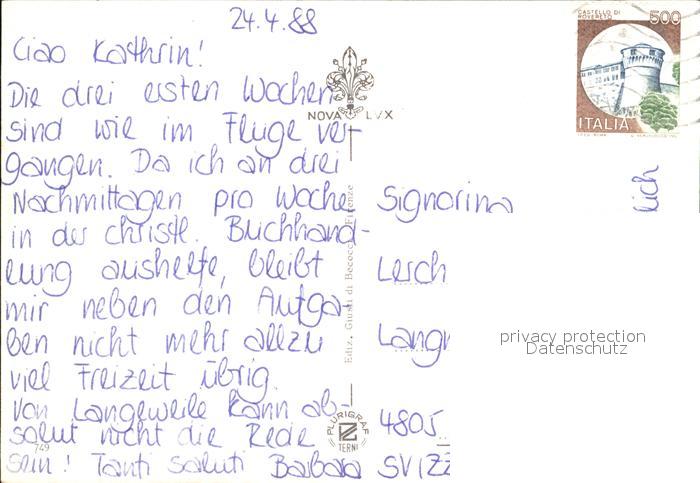 24.4.88
Ciao Kathrin!
Die drei ersten Wochen
sind wie im Fluge ver-
gangen. Da ich an drei
Nachmittagen pro Woche
in der christl. Buchhand-
lung aushelfe, bleibt
mir neben den Aufga-
ben nicht mehr allzu
viel Freizeit übrig.
Von Langeweile kann ab-
solut nicht die Rede
sein! Tanti saluti Barbara
NOVA LVX
Ediz. Giusti di Becocci Firenze
PLURIGRAF
TERNI
749
CASTELLO DI
ROVERETO
500
ITALIA
Signorina
Lerch
Lang
4805
SVIZZ
lich
privacy protection
Datenschutz